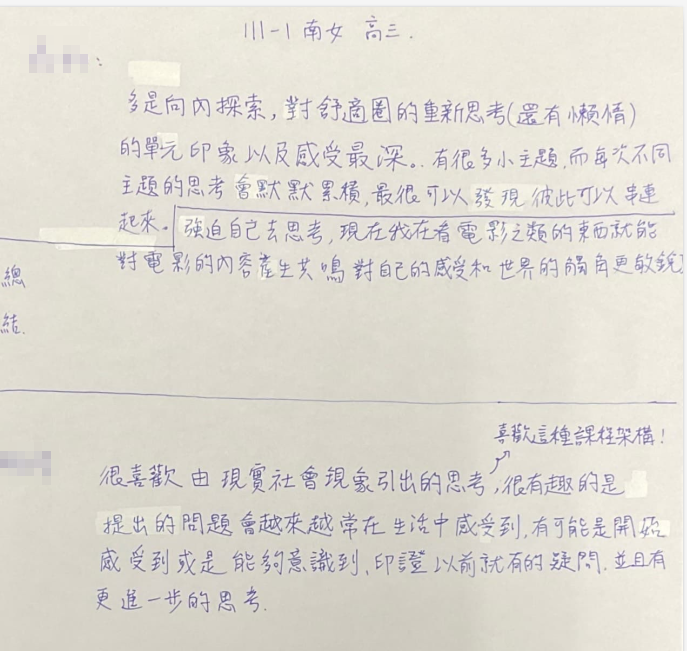 111-1 南女 高三.
：
多是向內探索，對舒適圈的重新思考(還有懶惰)
的單元印象以及感受最深。. 有很多小主題,而每次不同
主題的思考會默默累積,最很可以發現彼此可以串連
起來。強迫自己去思考,現在我在看電影之類的東西就能
對電影的內容產生共鳴對自己的感受和世界的觸角更敏銳
總
結.
喜歡這種課程架構！
很喜歡由現實社會現象引出的思考,很有趣的是
提出的問題會越來越常在生活中感受到,有可能是開始
感受到或是能夠意識到,印證以前就有的疑問.並且有
更進一步的思考.